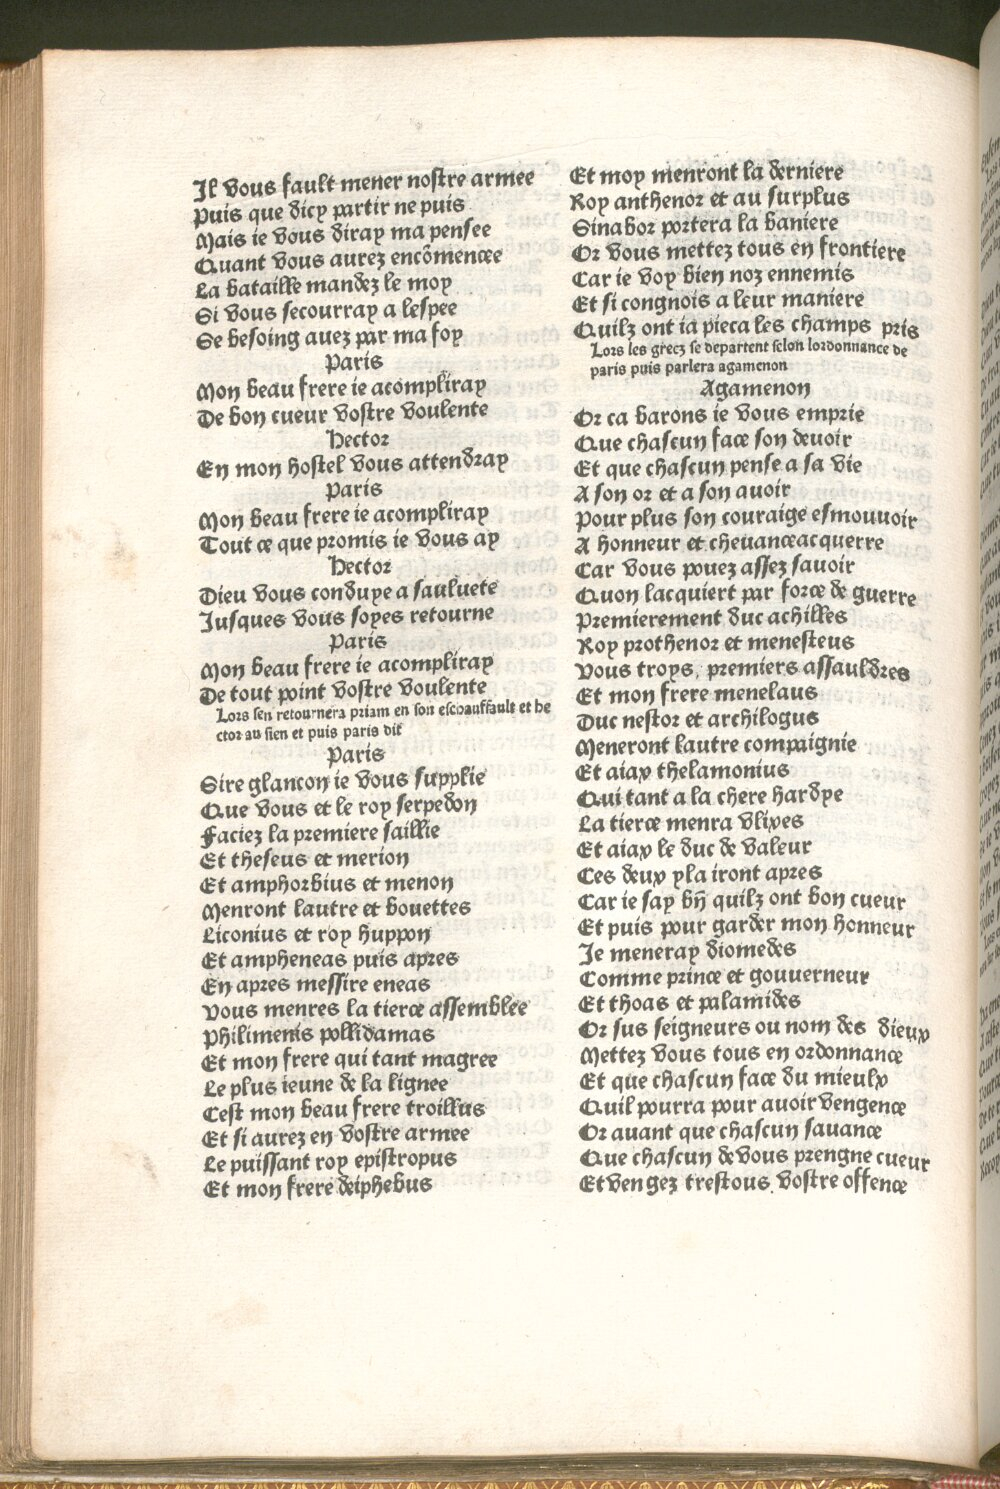 Il vous fault mener nostre armee
Puis que dicy partir ne puis
Mais ie vous diray ma pensee
Quant vous aurez encõmencee
La bataille mandez le moy
Si vous secourray a lespee
Se besoing auez par ma foy
Paris
Mon beau frere ie acompliray
De bon cueur vostre voulente
Hector
En mon hostel vous attendray
Paris
Mon beau frere ie acompliray
Tout ce que promis ie vous ay
Hector
Dieu vous conduye a sauluete
Jusques vous soyes retourne
Paris
Mon beau frere ie acompliray
De tout point vostre voulente
Lors sen retournera priam en son eschauffault et he
ctor au sien et puis paris dit
Paris
Sire glancon ie vous supplie
Que vous et le roy serpedon
Faciez la premiere saillie
Et theseus et merion
Et amphorbius et menon
Menront lautre et bouettes
Liconius et roy huppon
Et ampheneas puis apres
En apres messire eneas
Vous menres la tierce assemblee
Philimenis pollidamas
Et mon frere qui tant magree
Le plus ieune de la lignee
Cest mon beau frere troillus
Et si aurez en vostre armee
Le puissant roy epistropus
Et mon frere deiphebus
Et moy menront la derniere
Roy anthenor et au surplus
Sinabor portera la baniere
Or vous mettez tous en frontiere
Car ie voy bien noz ennemis
Et si congnois a leur maniere
Quilz ont ia pieca les champs pris
Lors les grecz se departent selon lordonnance de
paris puis parlera agamenon
Agamenon
Or ca barons ie vous emprie
Que chascun face son devoir
Et que chascun pense a sa vie
A son or et a son auoir
Pour plus son couraige esmouuoir
A honneur et cheuance acquerre
Car vous pouez assez sauoir
Quon lacquiert par force de guerre
Premierement duc achilles
Roy prothenor et menesteus
Vous troys, premiers assauldres
Et mon frere menelaus
Duc nestor et archilogus
Meneront lautre compaignie
Et aiax thelamonius
Qui tant a la chere hardye
La tierce menra vlixes
Et aiax le duc de valeur
Ces deux yla iront apres
Car ie say bñ quilz ont bon cueur
Et puis pour garder mon honneur
Je meneray diomedes
Comme prince et gouuerneur
Et thoas et palamides
Or sus seigneurs ou nom des dieux
Mettez vous tous en ordonnance
Et que chascun face du mieulx
Quil pourra pour auoir vengence
Or auant que chascun sauance
Que chascun de vous prengne cueur
Et vengez trestous vostre offence